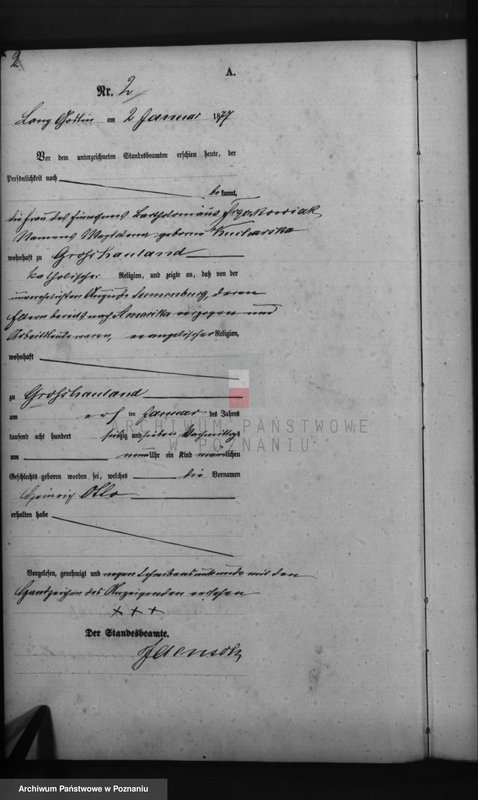 2.
A.
Nr. 2
Lang Goslin am 2 Januar 1877
Vor dem unterzeichneten Standesbeamten erschien heute, der
Persönlichkeit nach
be kannt,
die Frau des Bartholomäus
Namens Magdalena geborene Kucharska
wohnhaft zu Grosshauland
katholischer Religion, und zeigte an, daß von der
unverehelichten Auguste deren
Eltern bereits nach Amerika und
Arbeitsleute waren, evangelischer Religion,
wohnhaft
zu Grosshauland
am ten Januar des Jahres
tausend acht hundert siebzig und sieben Nachmittags
um neun Uhr ein Kind männlichen
Geschlechts geboren worden sei, welches die Vornamen
Heinrich Otto
erhalten habe
ARCHIWUM PAŃSTWOWE
W POZNANIU
Vorgelesen, genehmigt und wegen Schreibensunkunde mit den
Handzeichen des Anzeigenden versehen
+ + +
Der Standesbeamte.
Archiwum Państwowe w Poznaniu